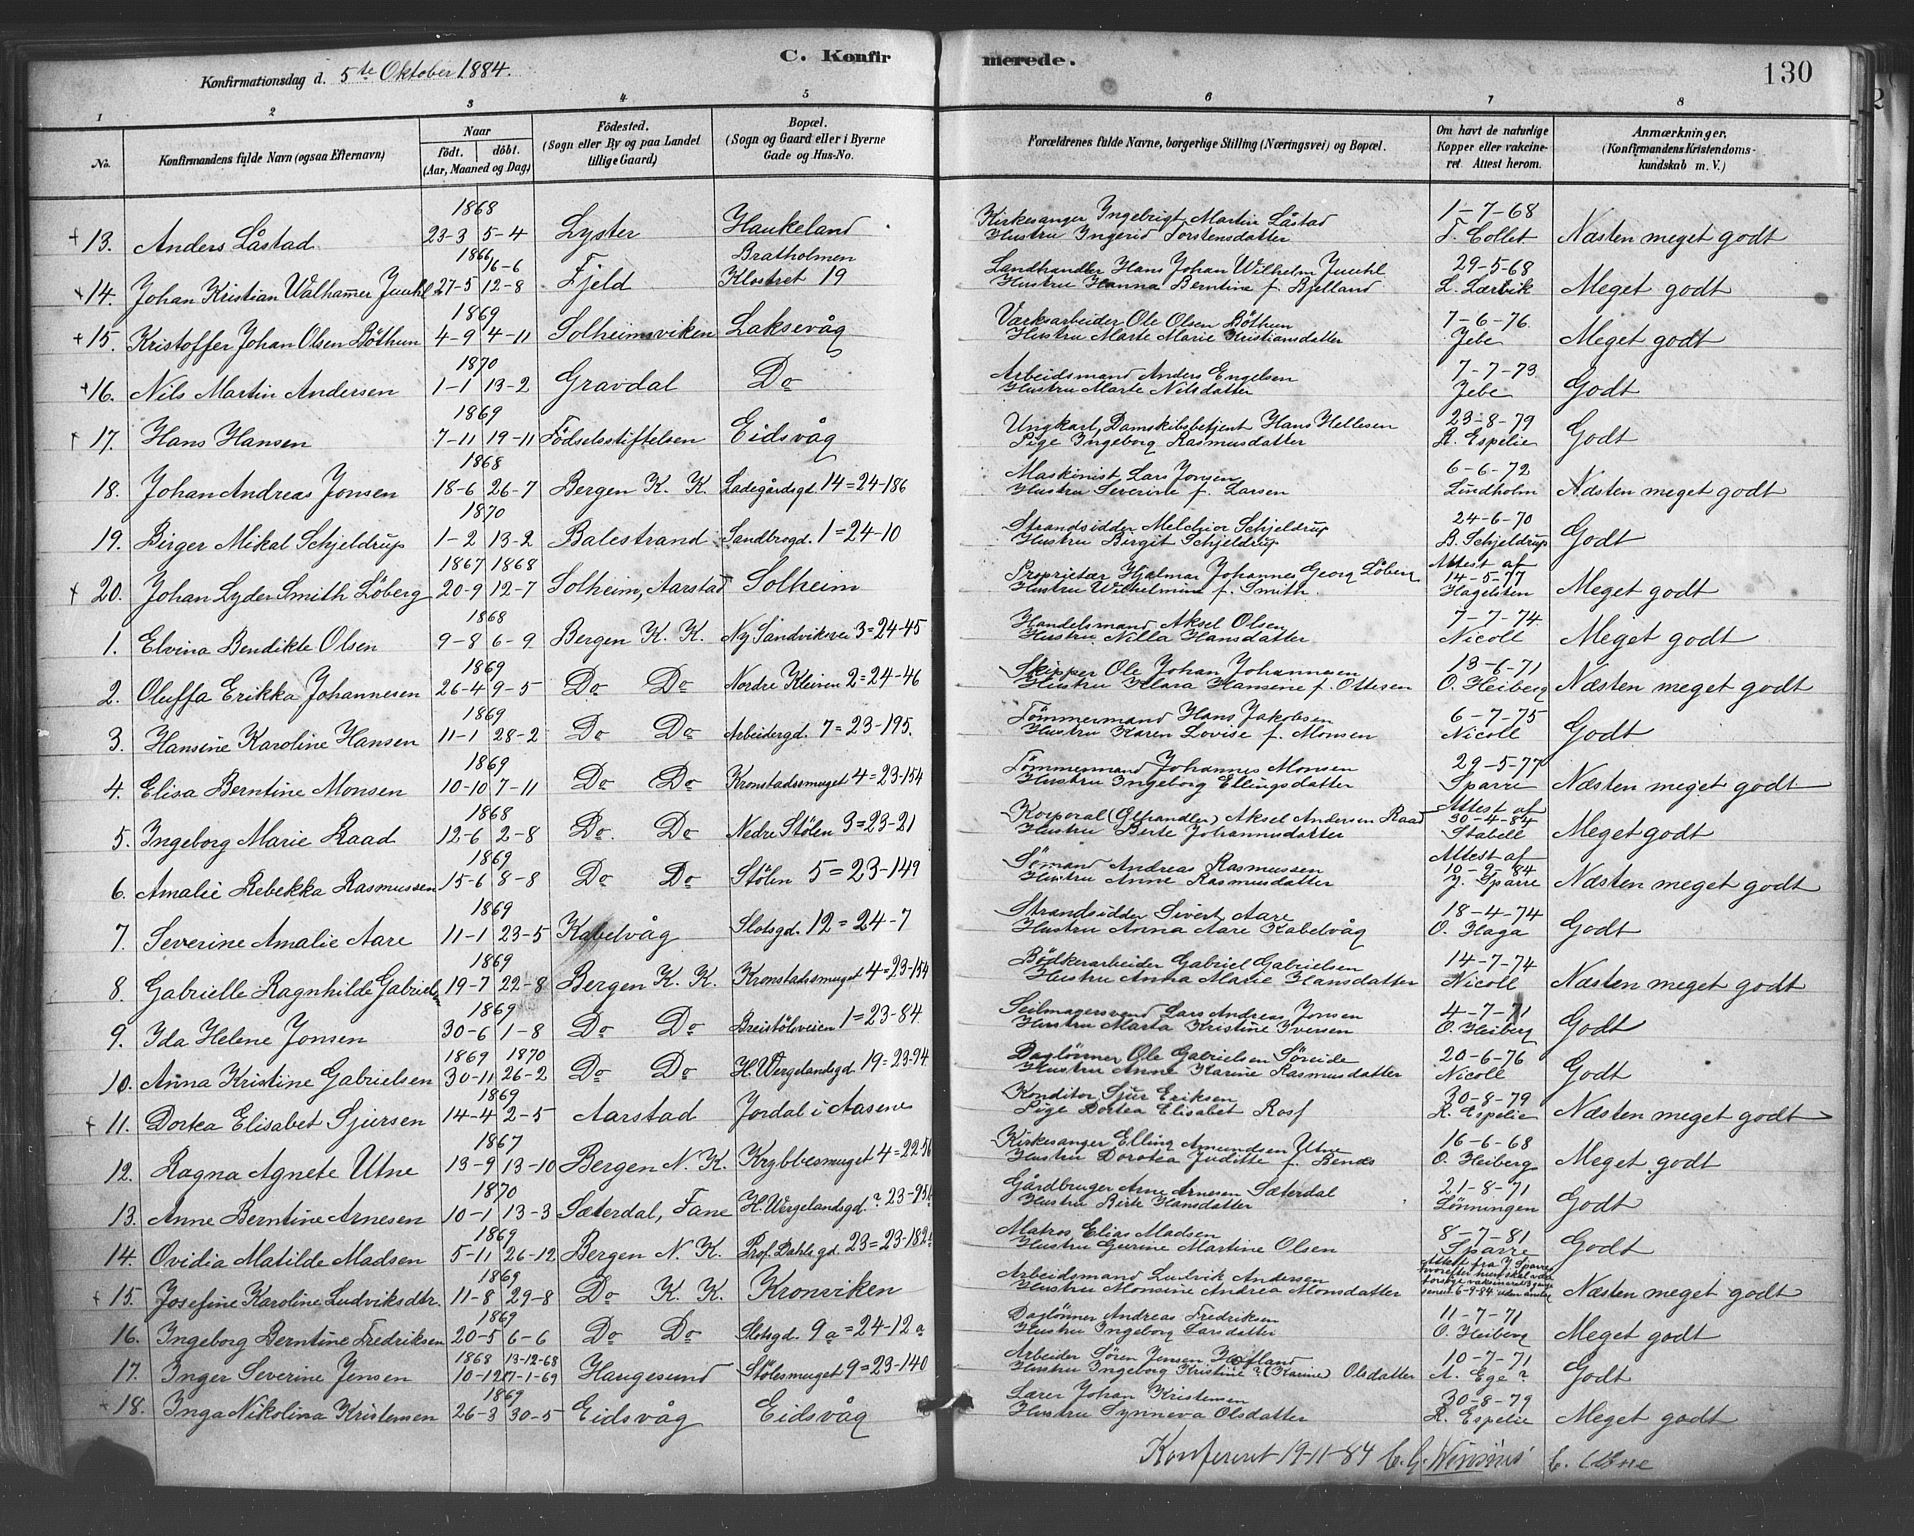 C. Konfirmerede.
130
Konfirmationsdag d. 5te Oktober 1884.
1 2 3 4 5 6 7 8
No. | Konfirmandens fulde Navn (ogsaa Efternavn) | Naar født. døbt. (Aar, Maaned og Dag) | Fødested. (Sogn eller By og paa Landet tillige Gaard) | Bopæl. (Sogn og Gaard eller i Byerne Gade og Hus-No. | Forældrenes fulde Navne, borgerlige Stilling (Næringsvei) og Bopæl. | Om havt de naturlige Kopper eller vakcineret. Attest herom. | Anmærkninger. (Konfirmandens Kristendomskundskab m. V.)
+ 13. Anders Låstad | 1868 23-3 5-4 | Lyster | Haukeland | Kirkesanger Ingebrigt Martin Låstad Hustru Ingerid Torstensdatter | 1-7-68 T. Collet | Næsten meget godt
+ 14. Johan Kristian Walhamer Juuhl | 1866 27-5 16-6 12-8 | Fjeld | Bratholmen Klostret 19 | Landhandler Hans Johan Wilhelm Juuhl Hustru Hanna Berntine f. Bjelland | 29-5-68 L. Larvik | Meget godt
+ 15. Kristoffer Johan Olsen Böthun | 1869 4-9 4-11 | Solheimsviken | Laksevåg | Værksarbeider Ole Olsen Böthun Hustru Marte Marie Kristiansdatter | 7-6-76 Jebe | Meget godt
+ 16. Nils Martin Andersen | 1870 1-1 13-2 | Gravdal | Do | Arbeidsmand Anders Engelsen Hustru Marte Nilsdatter | 7-7-73 Jebe | Godt
+ 17. Hans Hansen | 1869 7-11 19-11 | Födselsstiftelsen | Eidsvåg | Ungkarl, Damskibsbetjent Hans Hellesen Pige Ingeborg Rasmusdatter | 23-8-79 R. Espelie | Godt
18. Johan Andreas Jonsen | 1868 18-6 26-7 | Bergen K. K. | Ladegårdsgd. 14=24-186 | Maskinist Lars Jonsen Hustru Severine f. Larsen | 6-6-72 Lindholm | Næsten meget godt
19. Birger Mikal Schjeldrup | 1870 1-2 13-2 | Balestrand | Sandbrogd. 1=24-10 | Strandsidder Melchior Schjeldrup Hustru Birgit Schjeldrup | 24-6-70 B. Schjeldrup | Godt
+ 20. Johan Lyder Smith Löberg | 1867 1868 20-9 12-7 | Solheim, Aarstad | Solheim | Proprietær Hjalmar Johannes Georg Löberg Hustru Wilhelmine f. Smith. | Attest af 14-5-77 Hagelsten | Meget godt
1. Elvina Bendikte Olsen | 1868 9-8 6-9 | Bergen K. K. | Ny Sandviksvei 3=24-45 | Handelsmand Aksel Olsen Hustru Nilla Hansdatter | 7-7-74 Nicoll | Meget godt
2. Oluffa Erikka Johannesen | 1869 26-4 9-5 | Do Do | Nordre Kleiven 2=24-46 | Skipper Ole Johan Johannesen Hustru Klara Hansene f. Ottesen | 13-6-71 O. Heiberg | Næsten meget godt
3. Hansine Karoline Hansen | 1869 11-1 28-2 | Do Do | Arbeidergd. 7=23-195. | Tömmermand Hans Jakobsen Hustru Karen Lovise f. Monsen | 6-7-75 Nicoll | Godt
4. Elisa Berntine Monsen | 1869 10-10 7-11 | Do Do | Kronstadsmuget 4=23-154 | Tömmermand Johannes Monsen Hustru Ingeborg Ellingsdatter | 29-5-77 Sparre | Næsten meget godt
5. Ingeborg Marie Raad | 1868 12-6 2-8 | Do. Do | Nedre Stölen 3=23-21 | Korporal (Ølhandler) Aksel Andersen Raad Hustru Berte Johannusdatter | Attest af 30-4-84 Stabell | Meget godt
6. Amalie Rebekka Rasmussen | 1869 15-6 8-8 | Do Do | Stölen 5=23-149 | Sömand Andreas Rasmussen Hustru Anne Rasmusdatter | Attest af 10-9-84 J. Sparre | Næsten meget godt
7. Severine Amalie Aare | 1869 11-1 23-5 | Kabelvåg | Slotsgd. 12=24-7 | Strandsidder Sivert Aare Hustru Anna Aare Kabelvåg | 18-4-74 O. Haga | Godt
8. Gabrielle Ragnhilde Gabriels. | 1869 19-7 22-8 | Bergen K. K. | Kronstadsmuget 4=23-154 | Bödkerarbeider Gabriel Gabrielsen Hustru Anna Marie Hansdatter | 14-7-74 Nicoll | Næsten meget godt
9. Ida Helene Jonsen | 1869 30-6 1-8 | Do Do | Breistölsveien 1=23-84. | Seilmagersvend Lars Andreas Jonsen Hustru Marta Kristine Iversen | 4-7-71 O. Heiberg | Godt
10. Anna Kristine Gabrielsen | 1869 1870 30-11 26-2 | Do Do | H. Wergelandsgd. 19=23-94. | Daglönner Ole Gabrielsen Söreide Hustru Anne Karine Rasmusdatter | 20-6-76 Nicoll | Godt
+ 11. Dortea Elisabet Sjursen | 1869 14-4 2-5 | Aarstad | Jordal i Aasene | Konditor Sjur Eriksen Pige Dortea Elisabet Rosf | 30-8-79 R. Espelie | Næsten meget godt
12. Ragna Agnete Utne | 1867 13-9 13-10 | Bergen N. K. | Krybbesmuget 4=22-56 | Kirkesanger Elling Amundsen Utne Hustru Dorotea Juditte f. Bends | 16-6-68 O. Heiberg | Meget godt
13. Anne Berntine Arnesen | 1870 10-1 13-3 | Sæterdal, Fane | H. Wergelandsgd. ? 23-95b | Gårdbruger Arne Arnesen Sæterdal Hustru Birte Hansdatter | 21-8-71 Lönningen | Godt
14. Ovidia Matilde Madsen | 1869 5-11 26-12 | Bergen N. K. | Prof. Dahls gd. 23=23-182a | Matros Elias Madsen Hustru Gurine Martine Olsen | 8-7-81 Sparre | Godt
+ 15. Josefine Karoline Ludviksdtr. | 1869 11-8 29-8 | Do K. K. | Kronviken | Arbeidsmand Ludvik Andersen Hustru Monsine Andrea Monsdatter | Attest fra J. Sparre hvorefter hun skal være forsøgt vakcineret 3 gange senest 6-9-84 uden | Næsten meget godt
16. Ingeborg Berntine Fredriksen | 1869 20-5 6-6 | Do Do | Slotsgd. 9a=24-12a | Daglönner Andreas Fredriksen Hustru Ingeborg Larsdatter | 11-7-71 O. Heiberg | Meget godt
17. Inger Severine Jensen | 1868 10-12 13-12-68 17-1-69 | Haugesund | Stölesmuget 9=23-140 | Arbeider Sören Jensen Hustru Ingeborg Kristine ? (Karine) Olsdatter | 10-7-71 A. Ege ? | Godt
+ 18. Inga Nikolina Kristensen | 1869 26-3 30-5 | Eidsvåg | Eidsvåg | Lærer Johan Kristensen Hustru Synneva Olsdatter | 30-8-79 R. Espelie | Meget godt
Konfereret 19-11-84 C. G.